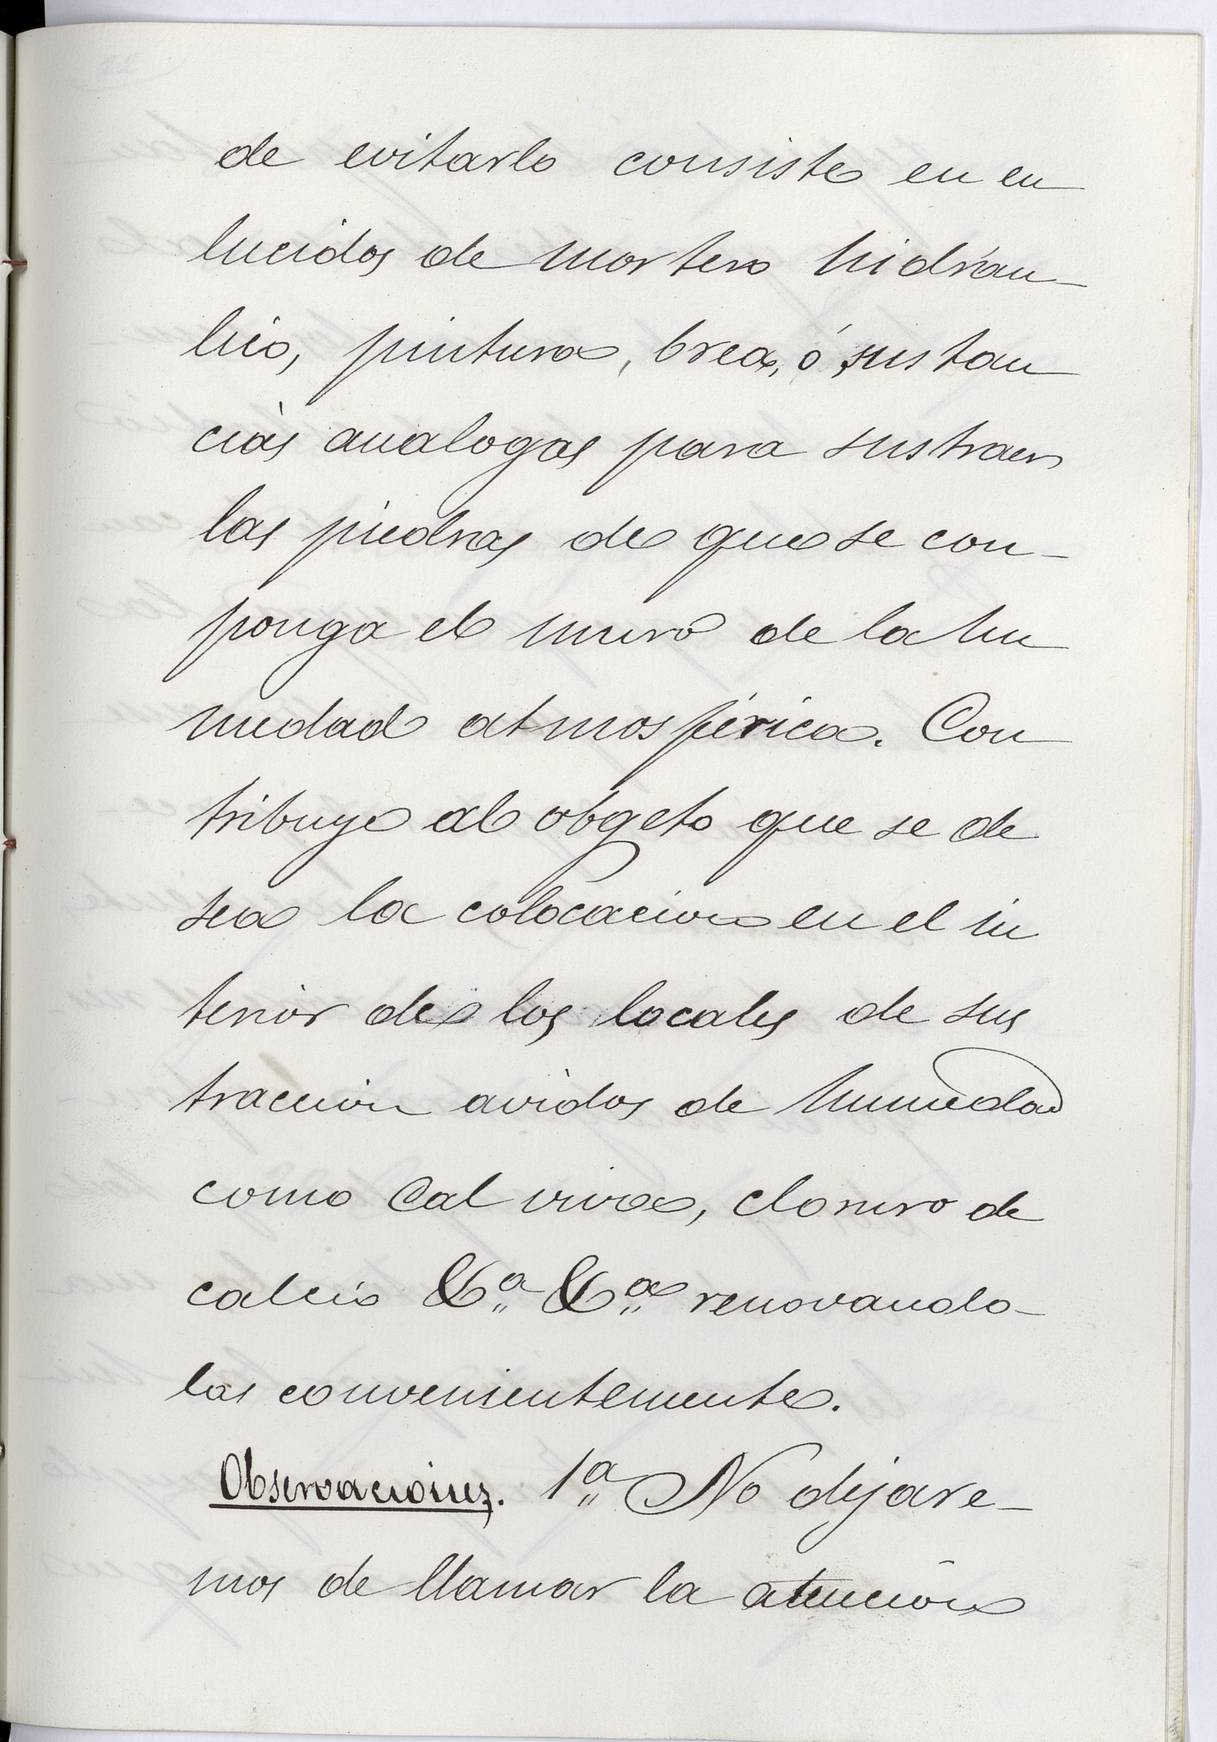 de evitarlo consiste en en
lucidos de mortero hidrau-
lico, pintura, brea, ó sustan
cias analogas para sustraer
las piedras de que se con-
ponga el muro de la hu
medad atmosférica. Con
tribuye al obgeto que se de
sea la colocacion en el in
terior de los locales de sus
traccion avidos de humedad
como Cal viva, cloruro de
calcio &a. &a. renovando-
las convenientemente.
Observaciones. 1a. No dejare-
mos de llamar la atencion